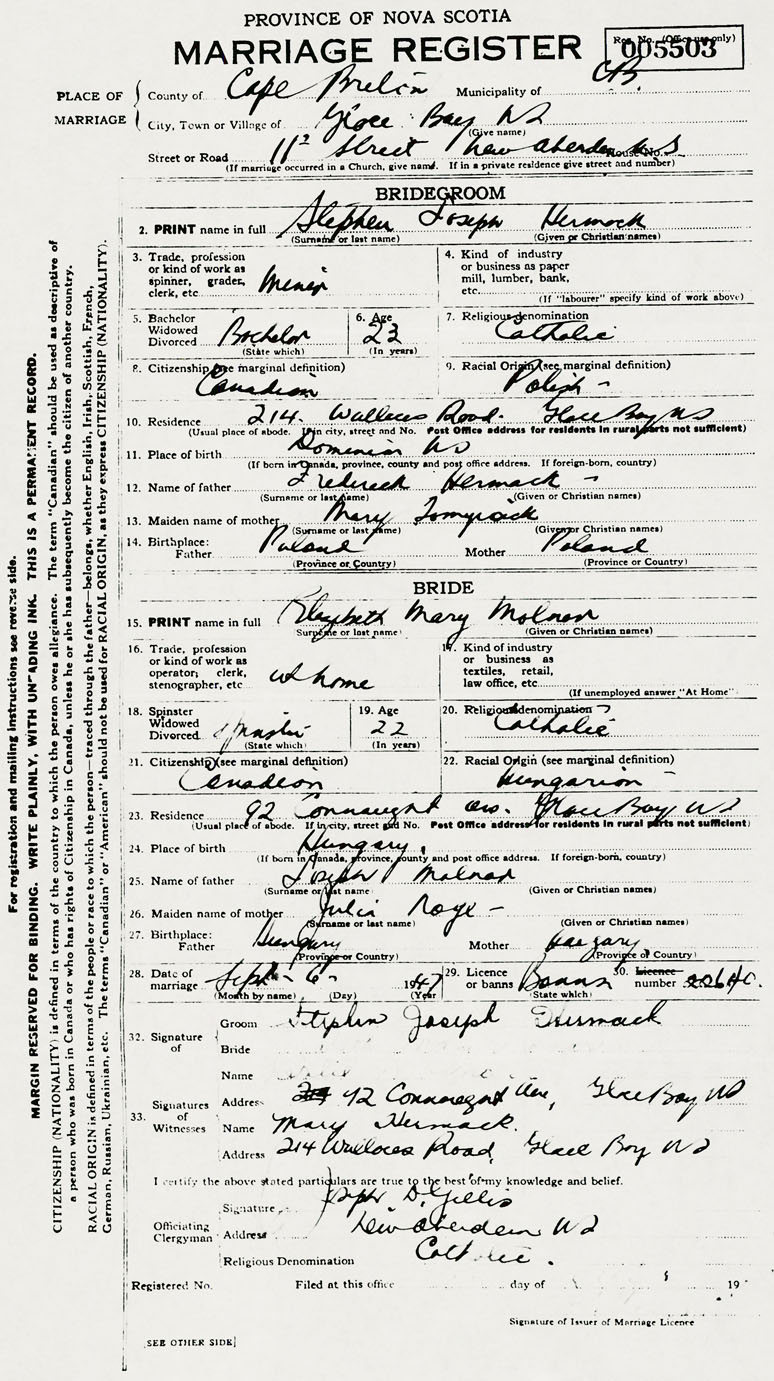 PROVINCE OF NOVA SCOTIA
MARRIAGE REGISTER
Reg. No. (Office use only)
005503
PLACE OF MARRIAGE
County of Cape Breton Municipality of CB.
City, Town or Village of Glace Bay NS
(Give name)
Street or Road 11th Street New Aberdeen NS House No.
(If marriage occurred in a Church, give name. If in a private residence give street and number)
BRIDEGROOM
2. PRINT name in full Stephen Joseph Hermack
(Surname or last name) (Given or Christian names)
3. Trade, profession or kind of work as spinner, grader, clerk, etc. Miner
4. Kind of industry or business as paper mill, lumber, bank, etc.
(If "labourer" specify kind of work above)
5. Bachelor Widowed Divorced Bachelor
(State which)
6. Age 23
(In years)
7. Religious denomination Catholic
8. Citizenship (see marginal definition) Canadian
9. Racial Origin (see marginal definition) Polish -
10. Residence 214 Wallaces Road. Glace Bay NS
(Usual place of abode. If in city, street and No. Post Office address for residents in rural parts not sufficient)
11. Place of birth Dominion NS
(If born in Canada, province, county and post office address. If foreign-born, country)
12. Name of father Frederick Hermack -
(Surname or last name) (Given or Christian names)
13. Maiden name of mother Mary
(Surname or last name) (Given or Christian names)
14. Birthplace: Father Poland Mother Poland
(Province or Country) (Province or Country)
BRIDE
15. PRINT name in full Elizabeth Mary Molnar
(Surname or last name) (Given or Christian names)
16. Trade, profession or kind of work as operator, clerk, stenographer, etc. at home
17. Kind of industry or business as textiles, retail, law office, etc.
(If unemployed answer "At Home"
18. Spinster Widowed Divorced Spinster
(State which)
19. Age 22
(In years)
20. Religious denomination Catholic
21. Citizenship (see marginal definition) Canadian
22. Racial Origin (see marginal definition) Hungarian -
23. Residence 92 Connaught Ave. Glace Bay NS
(Usual place of abode. If in city, street and No. Post Office address for residents in rural parts not sufficient)
24. Place of birth Hungary.
(If born in Canada, province, county and post office address. If foreign-born, country)
25. Name of father Joseph Molnar
(Surname or last name) (Given or Christian names)
26. Maiden name of mother Julia
(Surname or last name) (Given or Christian names)
27. Birthplace: Father Hungary Mother Hungary
(Province or Country) (Province or Country)
28. Date of marriage Sept - 6 - 1947
(Month by name) (Day) (Year)
29. Licence or banns Banns
(State which)
30. Licence number
32. Signature of
Groom Stephen Joseph Hermack
Bride
33. Signatures of Witnesses
Name
Address 92 Connaught Ave, Glace Bay NS
Name Mary Hermack.
Address 214 Wallaces Road, Glace Bay NS
I certify the above stated particulars are true to the best of my knowledge and belief.
Officiating Clergyman
Signature D. Gillis
Address New Aberdeen NS
Religious Denomination Catholic.
Registered No. Filed at this office day of 19
Signature of Issuer of Marriage Licence
[SEE OTHER SIDE]
For registration and mailing instructions see reverse side.
MARGIN RESERVED FOR BINDING. WRITE PLAINLY, WITH UNFADING INK. THIS IS A PERMANENT RECORD.
CITIZENSHIP (NATIONALITY) is defined in terms of the country to which the person owes allegiance. The term "Canadian" should be used as descriptive of
a person who was born in Canada or who has rights of Citizenship in Canada, unless he or she has subsequently become the citizen of another country.
RACIAL ORIGIN is defined in terms of the people or race to which the person—traced through the father—belongs, whether English, Irish, Scottish, French,
German, Russian, Ukrainian, etc. The terms "Canadian" or "American" should not be used for RACIAL ORIGIN, as they express CITIZENSHIP (NATIONALITY).